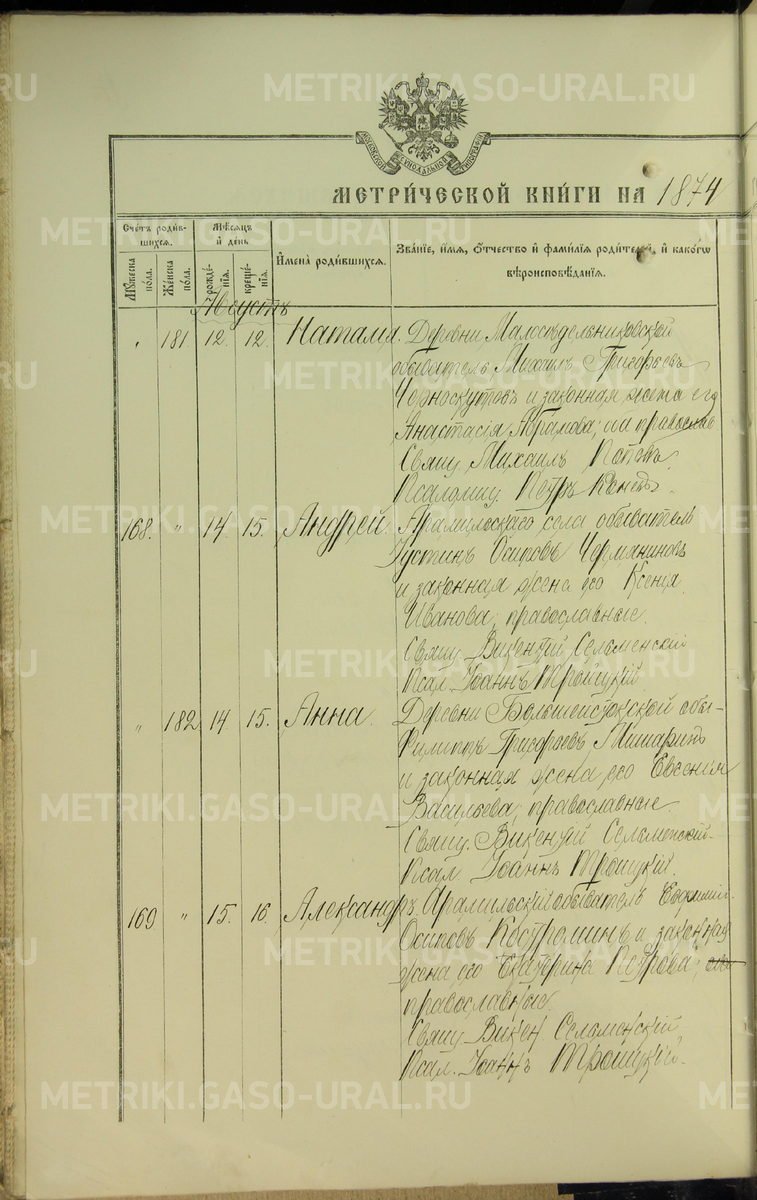 METRIKI.GASO-URAL.RU
МОСКОВСКОЙ СѴНОДАЛЬНОЙ ТИПОГРАФІИ
МЕТРИ́ЧЕСКОЙ КНИ́ГИ НА 1874
Счетъ роди́в-
шихся.
Мꙋ́жеска по́ла.
Же́нска по́ла.
Мѣ́сяцъ
и҆ де́нь
рожде́нїя.
креще́нїя.
И҆мена̀ роди́вшихся.
Зва́нїе, и҆́мя, ѻ҆́тчество и҆ фами́лїя роди́телей, и҆ како́гѡ
вѣроисповѣ́данїя.
Августъ
„ 181. 12. 12. Наталія. Деревни Малосѣдельниковской
обыватель Михаилъ Григорьевъ
Черноскутовъ и законная жена его
Анастасія Абрамова; оба православ
Свящ. Михаилъ Поповъ
Псаломщ. Петръ
168. „ 14. 15. Андрей. Арамильскаго села обыватель
Іустинъ Осиповъ Чермяниновъ
и законная жена его Ксенія
Иванова; православные.
Свящ. Викентій Селоменскій
Псал. Іоаннъ Троицкій
„ 182 14. 15. Анна. Деревни Большеистокской обы-
Филиппъ Григорьевъ Мишаринъ
и законная жена его Евгенія
Васильева; православные
Свящ. Викентій Селоменскій
Псал Іоаннъ Троицкій.
169 „ 15. 16. Александръ. Арамильскій обыватель Евфимій
Осиповъ Костроминъ и законная
жена его Екатерина Петрова;
православные
Свящ Викен Селоменскій
Псал. Іоаннъ Троицкій